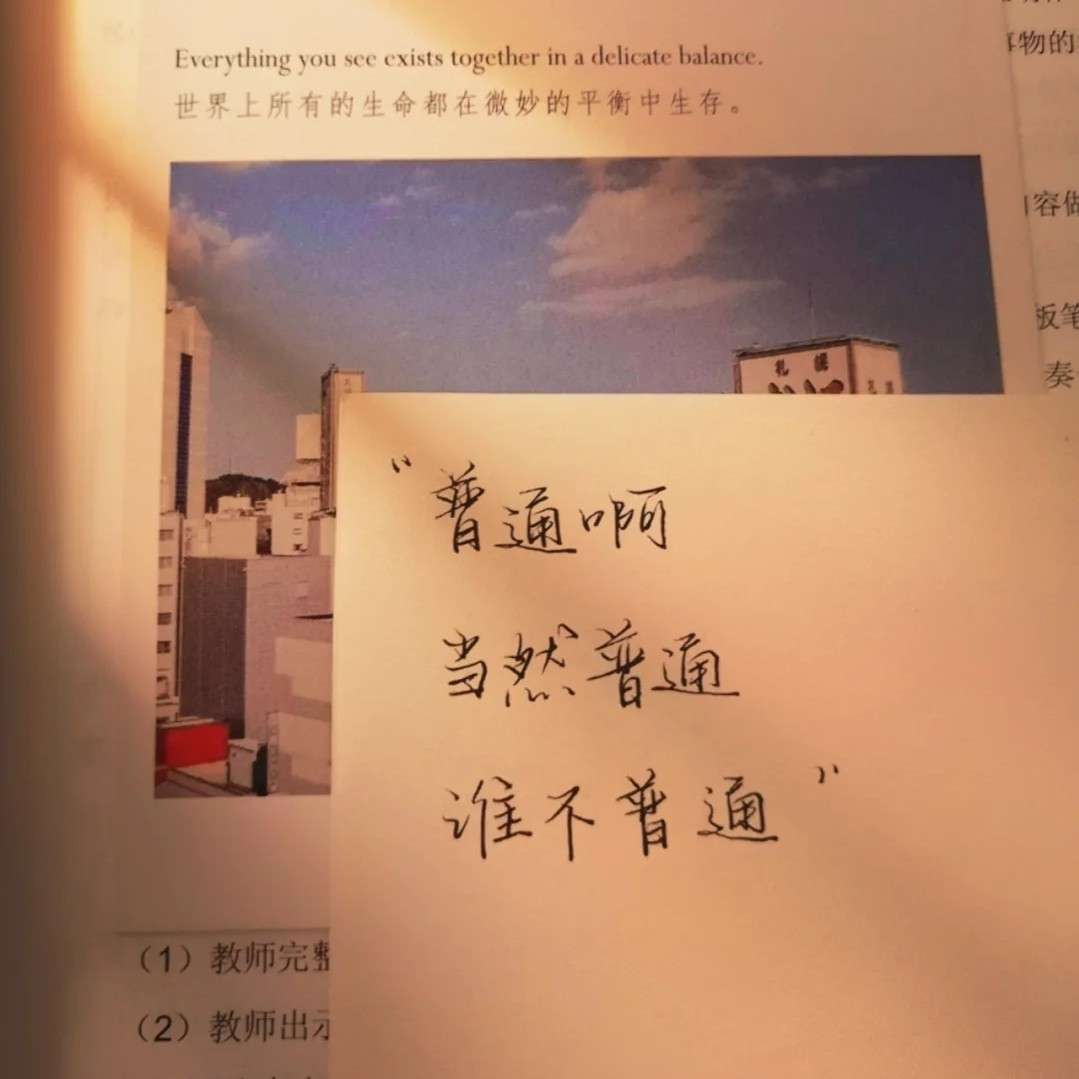 Everything you see exists together in a delicate balance.
世界上所有的生命都在微妙的平衡中生存。
事物的
内容做
板笔
奏
札幌
“普通啊
当然普通
谁不普通”
（1）教师完整
（2）教师出示